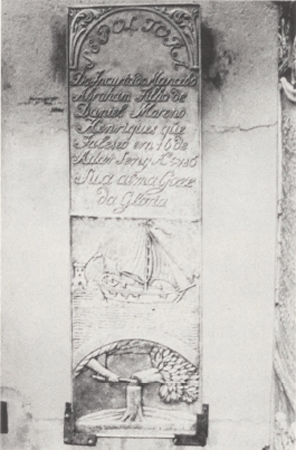 SEPOLTURA
Do Incurtado Mancebo
Abraham Filho de
Daniel Moreno
Henriques que
Faleseo em 16 de
Adar Seny Aº
Sua alma Goze
da Gloria